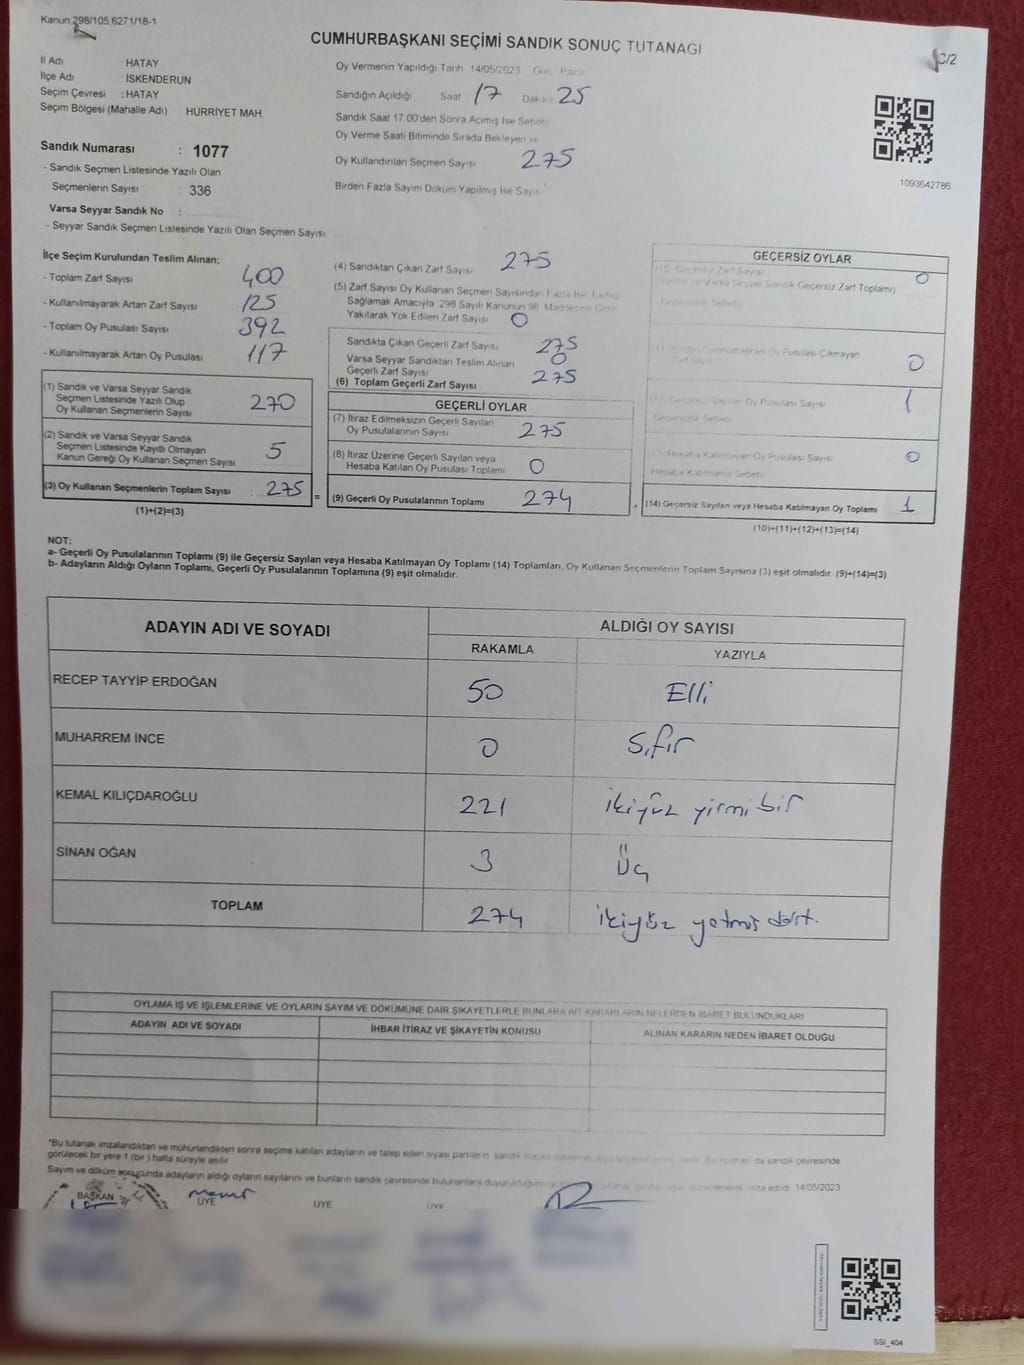 Kanun 298/105,6271/18-1
CUMHURBAŞKANI SEÇİMİ SANDIK SONUÇ TUTANAĞI
C/2
İl Adı : HATAY
İlçe Adı : İSKENDERUN
Seçim Çevresi : HATAY
Seçim Bölgesi (Mahalle Adı) HÜRRİYET MAH.
Sandık Numarası : 1077
- Sandık Seçmen Listesinde Yazılı Olan
Seçmenlerin Sayısı : 336
Varsa Seyyar Sandık No :
- Seyyar Sandık Seçmen Listesinde Yazılı Olan Seçmen Sayısı
Oy Vermenin Yapıldığı Tarih 14/05/2023 Gün Pazar
Sandığın Açıldığı Saat 17 Dakika 25
Sandık Saat 17:00'den Sonra Açımış İse Sebebi
Oy Verme Saati Bitiminde Sırada Bekleyen ve
Oy Kullandırılan Seçmen Sayısı 275
Birden Fazla Sayım Döküm Yapılmış İse Sayısı
1093642786
İlçe Seçim Kurulundan Teslim Alınan;
- Toplam Zarf Sayısı 400
- Kullanılmayarak Artan Zarf Sayısı 125
- Toplam Oy Pusulası Sayısı 392
- Kullanılmayarak Artan Oy Pusulası 117
(1) Sandık ve Varsa Seyyar Sandık
Seçmen Listesinde Yazılı Olup
Oy Kullanan Seçmenlerin Sayısı 270
(2) Sandık ve Varsa Seyyar Sandık
Seçmen Listesinde Kayıtlı Olmayan
Kanun Gereği Oy Kullanan Seçmen Sayısı 5
(3) Oy Kullanan Seçmenlerin Toplam Sayısı : 275 =
(1)+(2)=(3)
(4) Sandıktan Çıkan Zarf Sayısı 275
(5) Zarf Sayısı Oy Kullanan Seçmen Sayısından Fazla İse, Eşitliği
Sağlamak Amacıyla 298 Sayılı Kanunun 98. Maddesine Göre
Yakılarak Yok Edilen Zarf Sayısı 0
Sandıkta Çıkan Geçerli Zarf Sayısı 275
Varsa Seyyar Sandıktan Teslim Alınan
Geçerli Zarf Sayısı 0
(6) Toplam Geçerli Zarf Sayısı 275
GEÇERLİ OYLAR
(7) İtiraz Edilmeksizin Geçerli Sayılan
Oy Pusulalarının Sayısı 275
(8) İtiraz Üzerine Geçerli Sayılan veya
Hesaba Katılan Oy Pusulası Toplamı 0
(9) Geçerli Oy Pusulalarının Toplamı 274
GEÇERSİZ OYLAR
(10) Geçersiz Zarf Sayısı 0
Sandık ve Varsa Seyyar Sandık Geçersiz Zarf Toplamı)
Geçersizlik Sebebi
(11) İçinden Cumhurbaşkanı Oy Pusulası Çıkmayan
Zarf Sayısı 0
(12) Geçersiz Sayılan Oy Pusulası Sayısı 1
Geçersizlik Sebebi
(13) Hesaba Katılmayan Oy Pusulası Sayısı 0
Hesaba Katılmama Sebebi
(14) Geçersiz Sayılan veya Hesaba Katılmayan Oy Toplamı 1
(10)+(11)+(12)+(13)=(14)
NOT:
a- Geçerli Oy Pusulalarının Toplamı (9) ile Geçersiz Sayılan veya Hesaba Katılmayan Oy Toplamı (14) Toplamları, Oy Kullanan Seçmenlerin Toplam Sayısına (3) eşit olmalıdır. (9)+(14)=(3)
b- Adayların Aldığı Oyların Toplamı, Geçerli Oy Pusulalarının Toplamına (9) eşit olmalıdır.
ADAYIN ADI VE SOYADI
ALDIĞI OY SAYISI
RAKAMLA YAZIYLA
RECEP TAYYİP ERDOĞAN 50 Elli
MUHARREM İNCE 0 Sıfır
KEMAL KILIÇDAROĞLU 221 ikiyüz yirmi bir
SİNAN OĞAN 3 Üç
TOPLAM 274 ikiyüz yetmiş dört.
OYLAMA İŞ VE İŞLEMLERİNE VE OYLARIN SAYIM VE DÖKÜMÜNE DAİR ŞİKAYETLERLE BUNLARA AİT KARARLARIN NELERDEN İBARET BULUNDUKLARI
ADAYIN ADI VE SOYADI İHBAR İTİRAZ VE ŞİKAYETİN KONUSU ALINAN KARARIN NEDEN İBARET OLDUĞU
*Bu tutanak imzalandıktan ve mühürlendikten sonra seçime katılan adayların ve talep eden siyasi partilerin sandık da sandık çevresinde
görülecek bir yere 1 (bir) hafta süreyle asılır.
Sayım ve döküm sonucunda adayların aldığı oyların sayılarını ve bunların sandık çevresinde bulunanlara duyurulduğunu imza edildi. 14/05/2023
BAŞKAN ÜYE ÜYE ÜYE
SSI_404